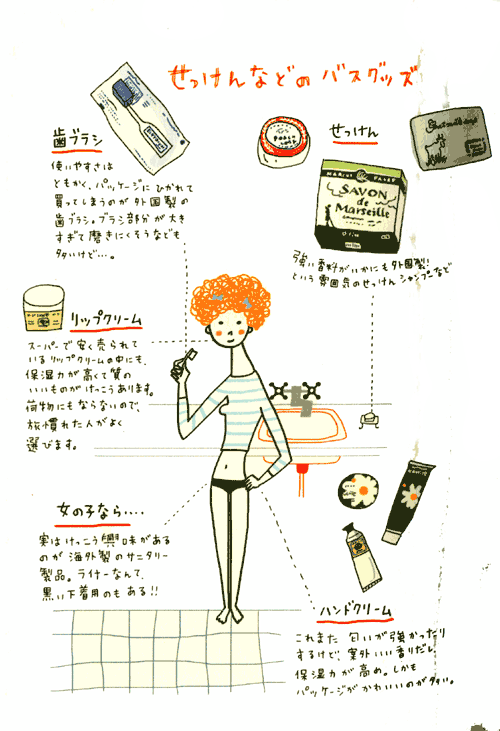 せっけんなどのバスグッズ
歯ブラシ
使いやすさは
ともかく、パッケージにひかれて
買ってしまうのが外国製の
歯ブラシ。ブラシ部分が大き
すぎて磨きにくそうなども
多いけど…。
せっけん
SAVON
de
Marseille
強い香料がいかにも外国製!
という雰囲気のせっけん シャンプーなど
リップクリーム
スーパーで安く売られて
いるリップクリームの中にも、
保湿力が高くて質の
いいものがけっこうあります。
荷物にもならないので、
旅慣れた人がよく
選びます。
女の子なら....
実はけっこう興味がある
のが海外製のサニタリー
製品。ライナーなんて、
黒い下着用のもある!!
ハンドクリーム
これまた 匂いが強かったり
するけど、案外いい香りだし、
保湿力が高め。しかも
パッケージがかわいいのが多い。